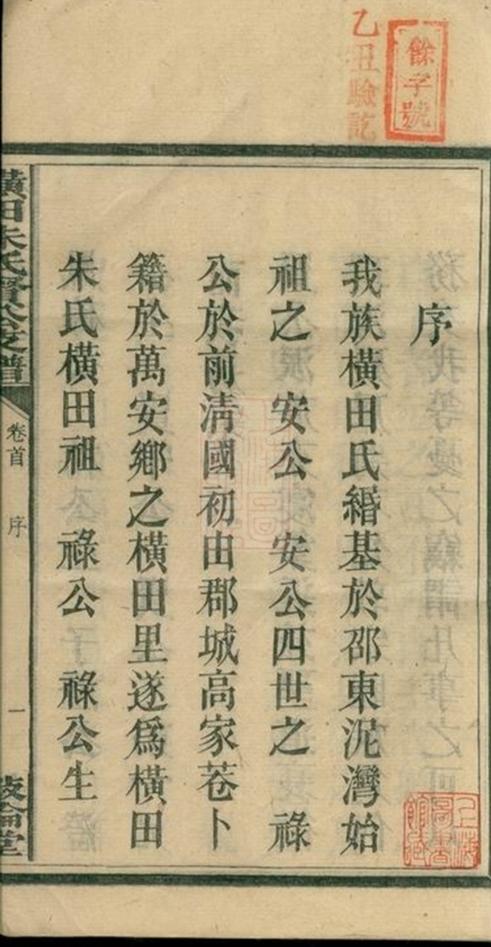 餘字號
乙丑驗訖
序
我族橫田氏緡基於邵東泥灣始
祖之　安公　安公四世之　祿
公於前淸國初由郡城高家菴卜
籍於萬安鄉之橫田里遂爲橫田
朱氏橫田祖　祿公　祿公生
橫田朱氏賢公支譜
卷首
序
一
上海圖書館藏